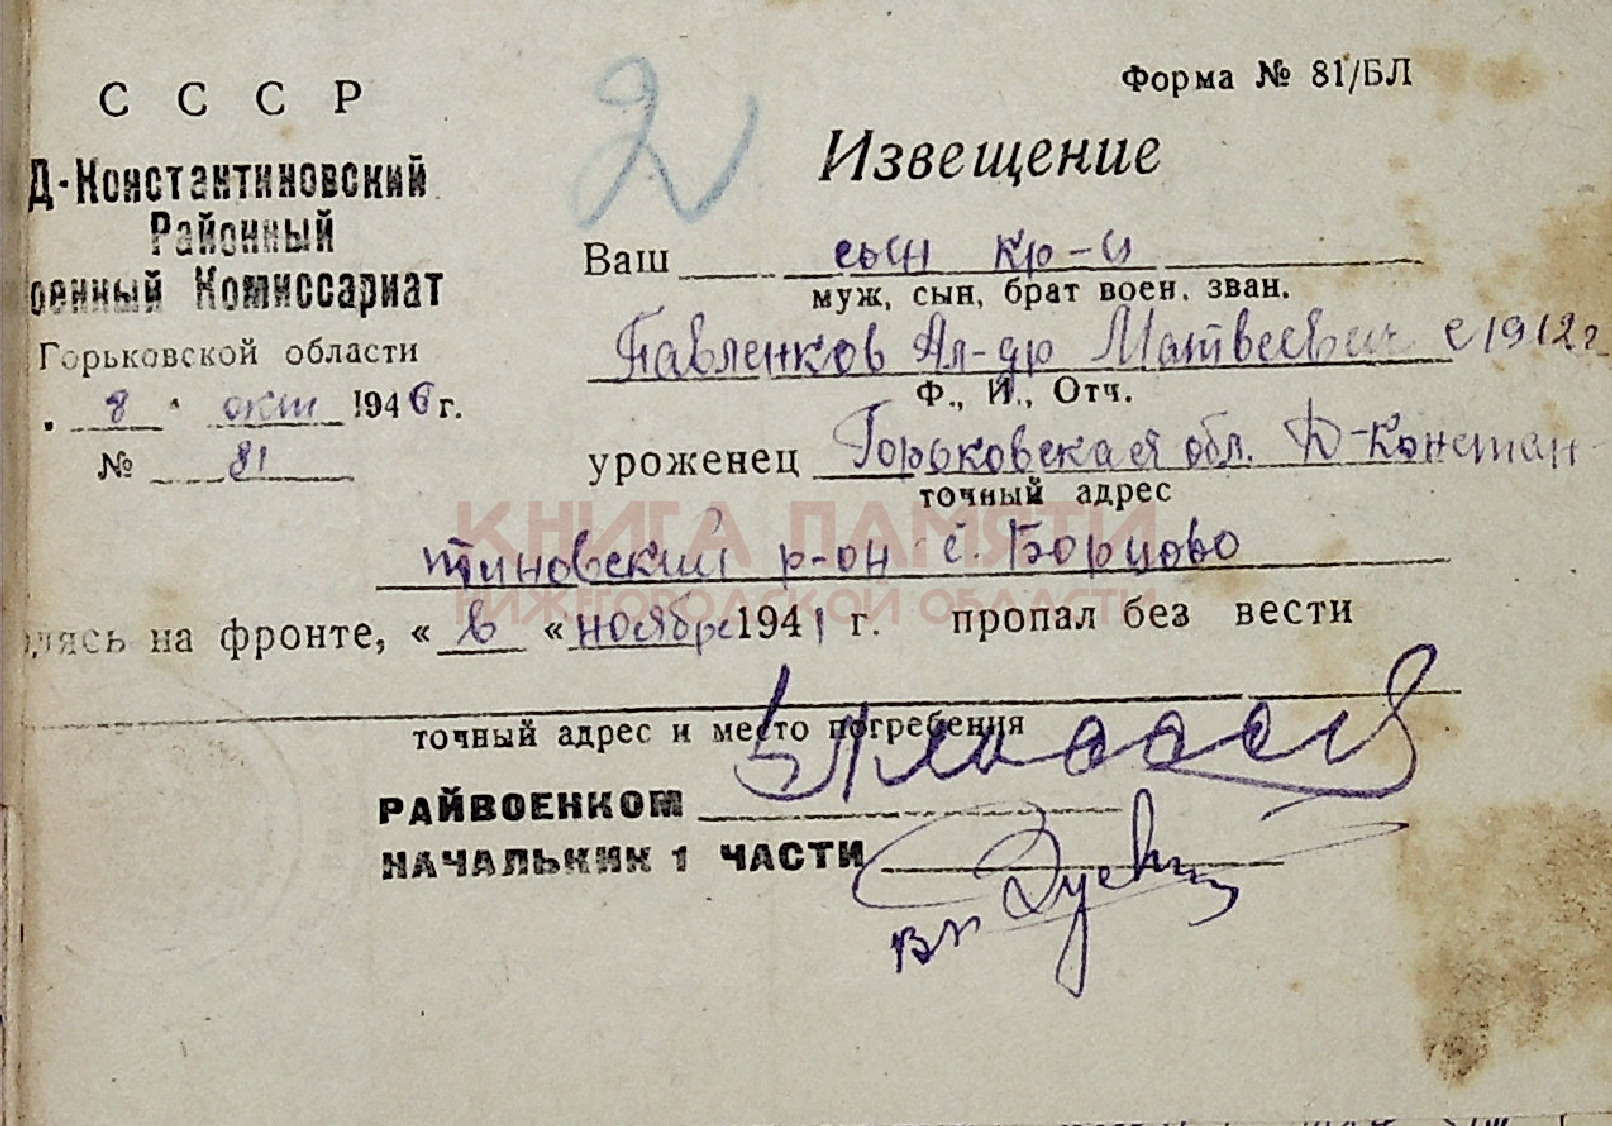 Форма № 81/БЛ
С С С Р
2
Извещение
Д-Константиновский
Районный
оенный Комиссариат
Горьковской области
8 окт 1946 г.
№ 81
Ваш сын кр-ц
муж, сын, брат воен. зван.
Павленков Ал-др Матвеевич с 1912 г
Ф., И., Отч.
уроженец Горьковская обл. Д-Констан-
точный адрес
тиновский р-он с. Борцово
КНИГА ПАМЯТИ
НИЖЕГОРОДСКОЙ ОБЛАСТИ
дясь на фронте, « в « ноябре 1941 г. пропал без вести
точный адрес и место погребения
РАЙВОЕНКОМ
НАЧАЛЬНИК 1 ЧАСТИ